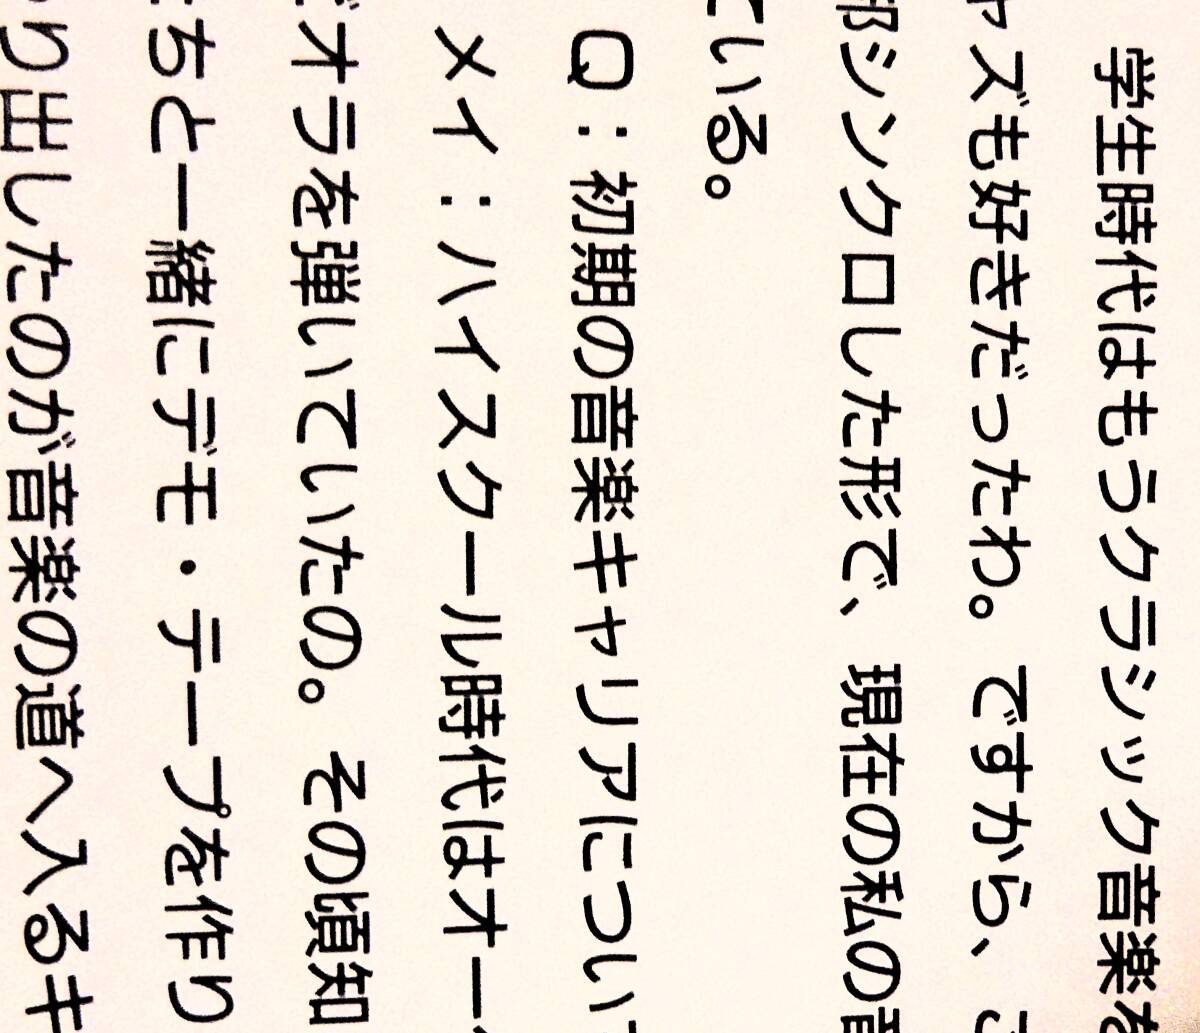 学生時代はもうクラシック音楽を
ャズも好きだったわ。ですから、こ
部シンクロした形で、現在の私の音
ている。
Q：初期の音楽キャリアについて
メイ：ハイスクール時代はオー
オラを弾いていたの。その頃知
たちと一緒にデモ・テープを作り
り出したのが音楽の道へ入るキ